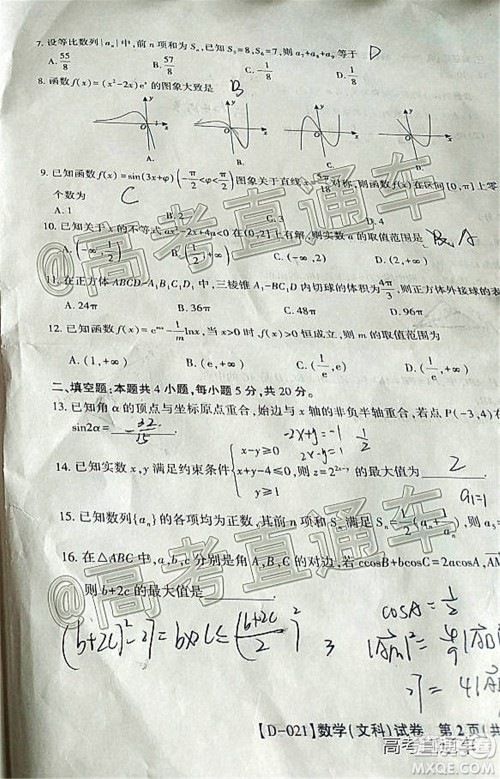 7. 设等比数列{aₙ}中,前n项和为Sₙ,已知S₃=8,S₆=7,则a₇+a₈+a₉等于 D
A. 55/8 B. 57/8 C. -1/8 D. 1/8
8. 函数f(x)=(x²-2x)eˣ的图象大致是 B
A. B. C. D.
9. 已知函数f(x)=sin(3x+φ)(-π/2<φ<π/2)图象关于直线x=5π/18对称,则函数f(x)在区间[0,π]上零
个数为 C
A. 1 B. 2 C. 3 D. 4
10. 已知关于x的不等式ax²-2x+4a<0在(0,2]上有解,则实数a的取值范围是 A
A. (-∞,1/2) B. (1/2,+∞) C. (-∞,2) D. (2,+∞)
11. 在正方体ABCD-A₁B₁C₁D₁中,三棱锥A₁-BC₁D内切球的体积为4π/3,则正方体外接球的表
A. 24π B. 36π C. 48π D. 96π
12. 已知函数f(x)=eᵐˣ-1/m lnx,当x>0时f(x)>0恒成立,则m的取值范围为
A. (1,+∞) B. (e,+∞) C. (1/e,e) D. (1/e,+∞)
二、填空题:本题共4小题,每小题5分,共20分。
13. 已知角α的顶点与坐标原点重合,始边与x轴的非负半轴重合,若点P(-3,4)在
sin2α=
14. 已知实数x,y满足约束条件{x-y≥0 x+y-4≤0, y≥1 则z=2²ˣ⁻ʸ的最大值为 2
a₁=1
15. 已知数列{aₙ}的各项均为正数,其前n项和Sₙ满足Sₙ=1/2(aₙ+1/aₙ),则a
16. 在△ABC中,a,b,c分别是角A,B,C的对边,若ccosB+bcosC=2acosA,
则b+2c的最大值是
cosA=1/2
【D-021】数学(文科)试卷 第2页(共
@高考直通车
@高考直通车
高考直通车
MXQE.COM